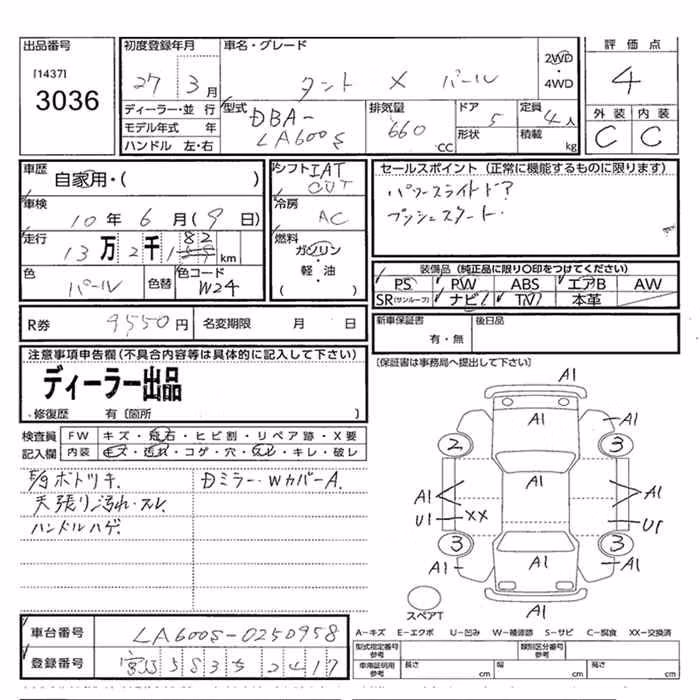 出品番号
[1437]
3036
初度登録年月
27 3月
車名・グレード
タント X パール
2WD
・
4WD
評価点
4
外装 内装
C C
ディーラー・並 行
モデル年式 年
ハンドル 左・右
型式
DBA-
LA600S
排気量
660
CC
ドア
5
形状
定員
4人
積載
kg
車歴
自家用・( )
車検
10年 6月(9日)
走行
13万2千182km
色
パール
色替
色コード
W24
シフト IAT
CVT
冷房
AC
燃料
ガソリン
・
軽・油
( )
セールスポイント(正常に機能するものに限ります)
パワースライドド?
プッシュスタート
装備品(純正品に限り〇印をつけてください)
PS PW ABS エアB AW
SR(サンルーフ) ナビ TV 本革
R券 9550円 名変期限 月 日
新車保証書
有・無
後日品
注意事項申告欄(不具合内容等は具体的に記入して下さい)
ディーラー出品
修復歴 有〔箇所 〕
〔保証書は事務局へ提出して下さい〕
検査員
記入欄
FW キズ・飛石・ヒビ割・リペア跡・X要
内装 キズ・汚れ・コゲ・穴・スレ・キレ・破レ
ボトツキ.
天張り汚れ・スレ.
ハンドルハゲ.
Dミラー・WカバーA.
A1
A1
A1
2
3
A1
A1
A1
U1
XX
U1
3
3
A1
A1
A1
A1
スペアT
車台番号 LA600S-0250958
登録番号 583 2417
A-キズ E-エクボ U-凹み W-補修跡 S-サビ C-腐食 XX-交換済
型式指定番号
参考
類別区分番号
参考
車庫証明用
参考
長さ cm
幅 cm
高さ cm